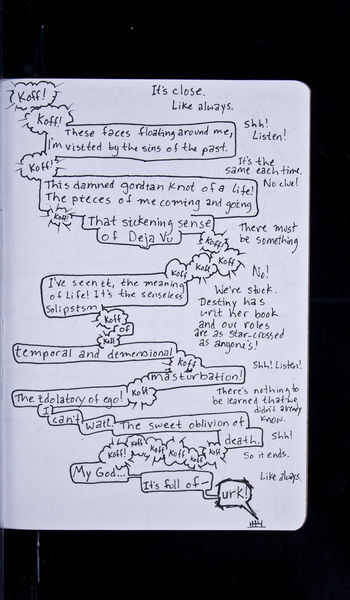 Koff!
It's close.
Like always.
Koff!
Shh!
Listen!
These faces floating around me,
I'm visited by the sins of the past.
Koff!
It's the
same each time.
No clue!
This damned gordian knot of a life!
The pieces of me coming and going
Koff!
That sickening sense
of Deja Vu
There must
be something
Koff!
Koff
Koff
Koff
No!
I've seen it, the meaning
of life! It's the senseless
Solipsism
We're stuck.
Destiny has
writ her book
and our roles
are as star-crossed
as anyone's!
Koff
of
Koff
temporal and demensional
Koff
Shh! Listen!
masturbation!
The idolatory of ego!
Koff
There's nothing to
be learned that we
didn't already
know.
I
can't
wait.
The sweet oblivion of
death.
Shh!
Koff!
Koff
Koff
Koff
Koff
Koff
So it ends.
My God...
It's full of—
Like always.
urk!